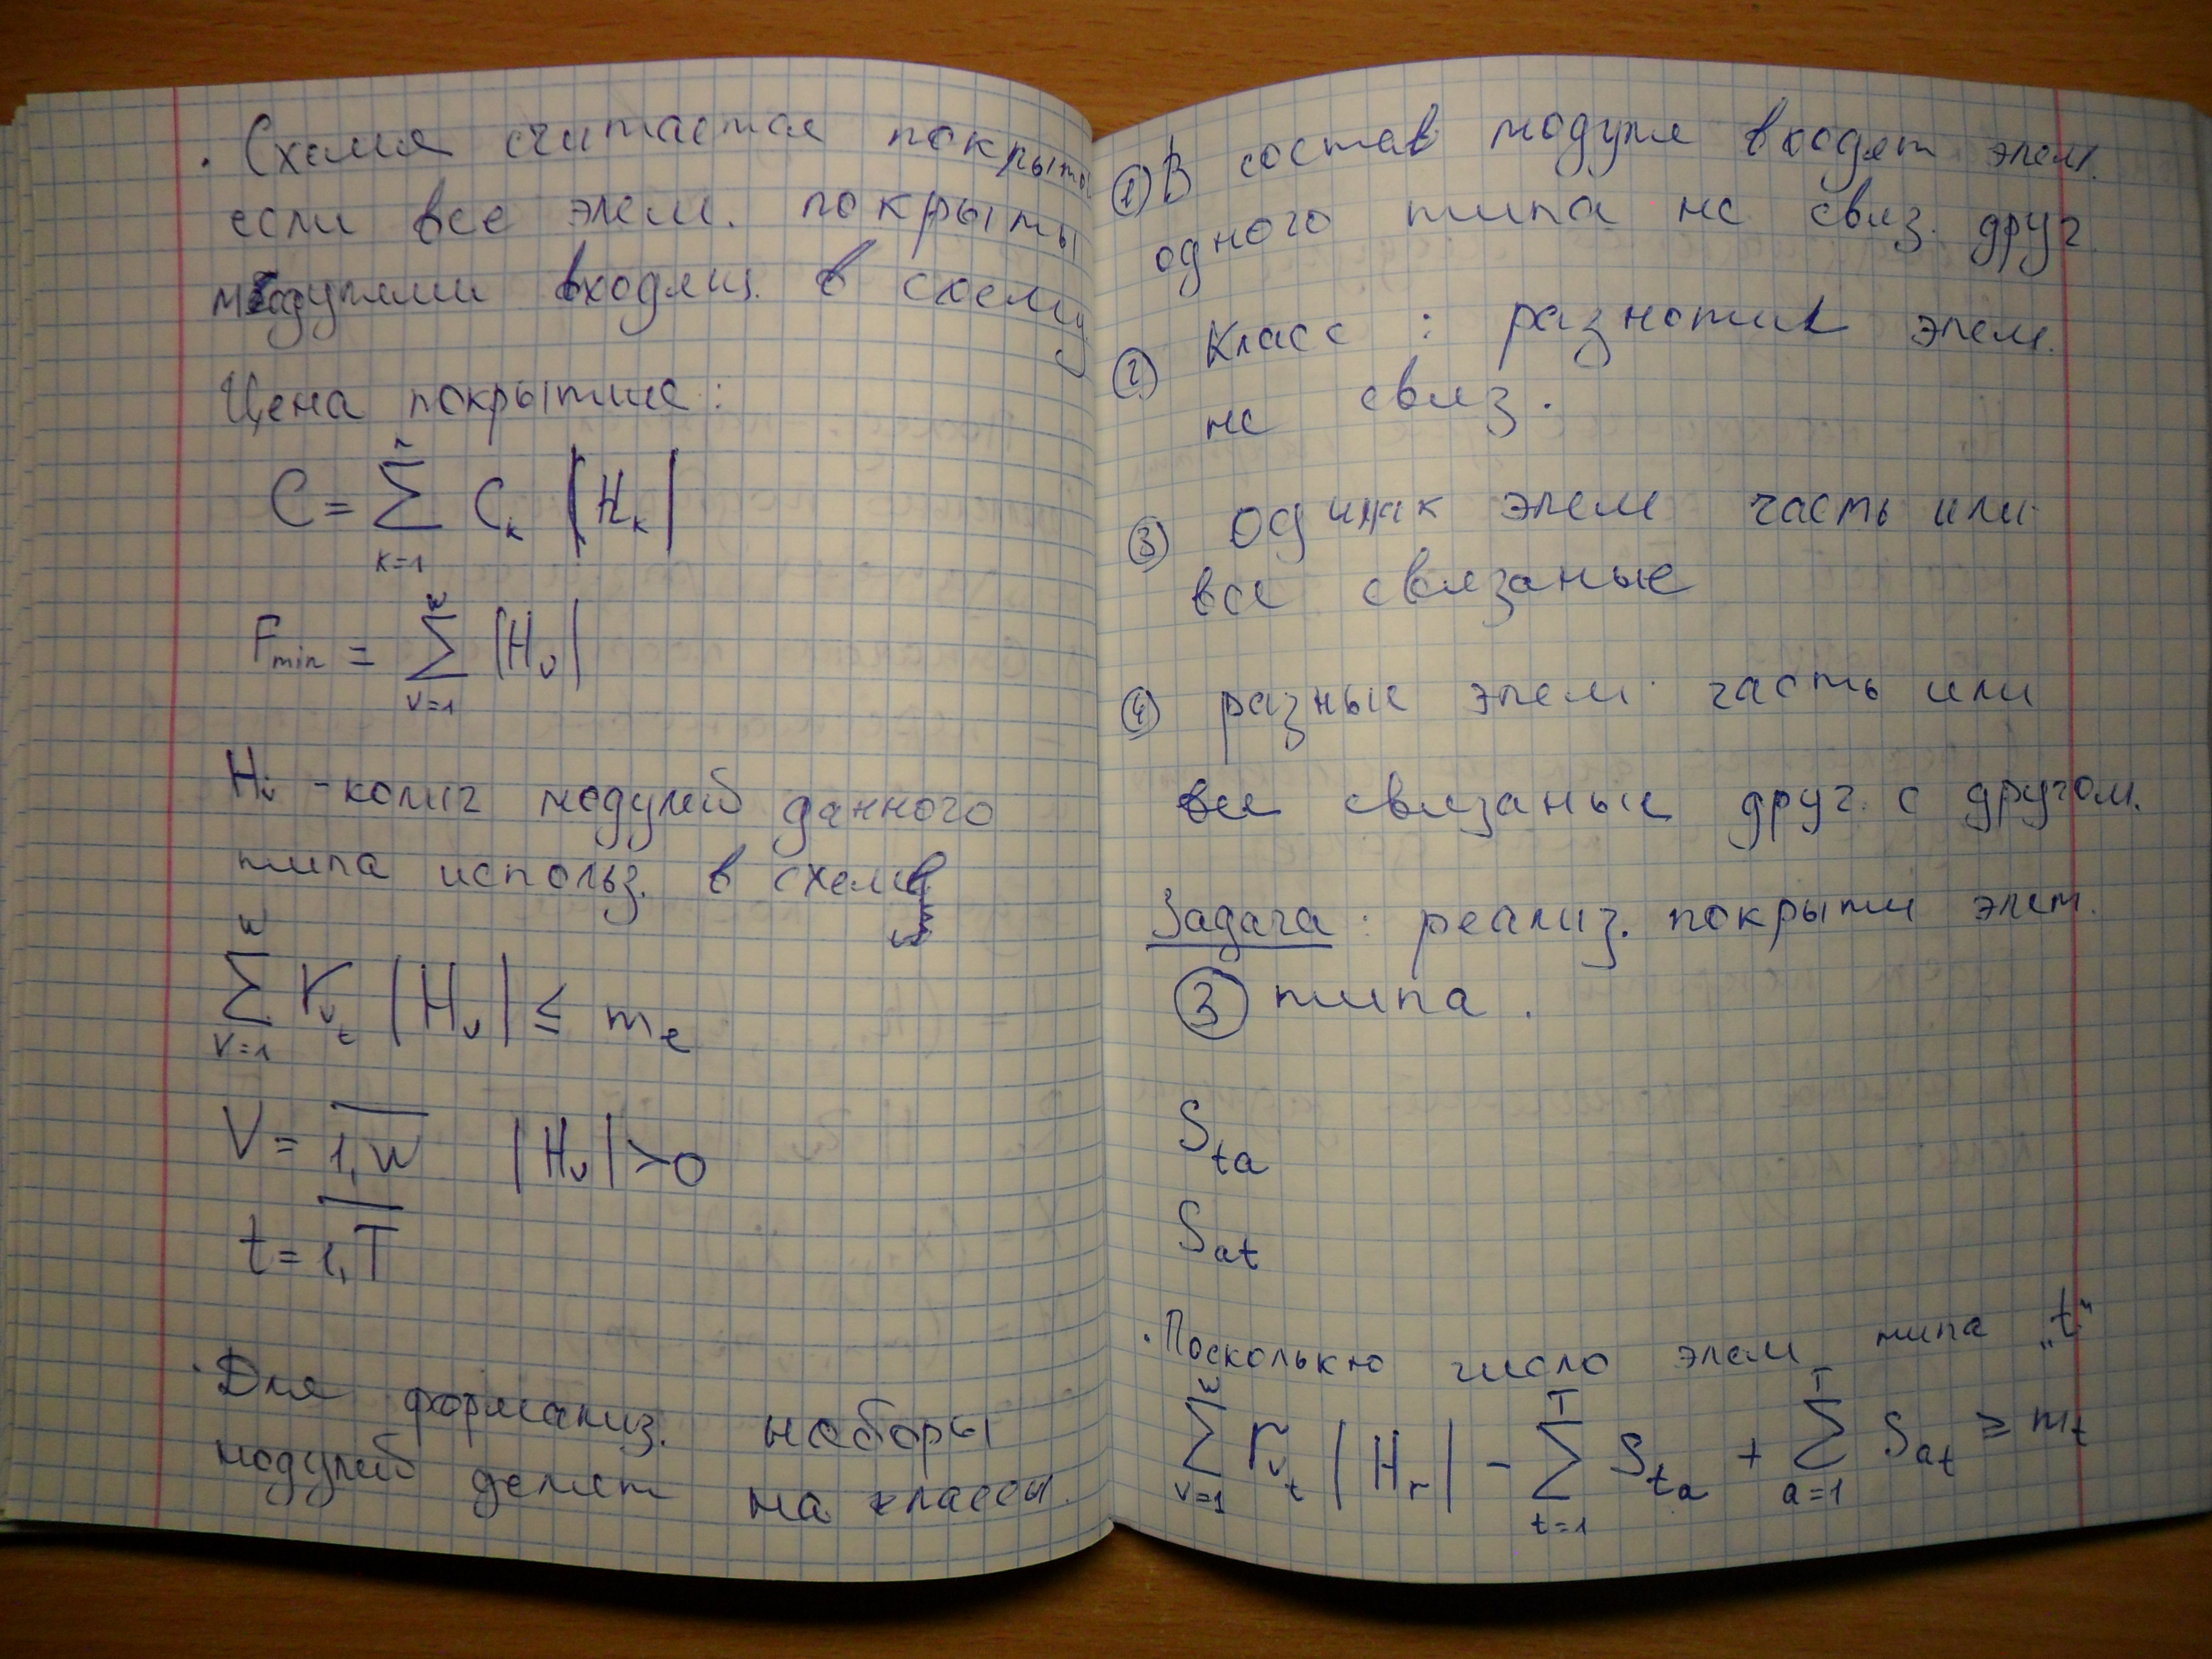 . Схема считается покрыты
если все элем. покрыты
модулями входящ. в схему
Цена покрытие:
C = ∑ C_k |H_k|
k=1
F_min = ∑ |H_v|
v=1
H_v - колич модулей данного
типа использ. в схему
w
∑ r_vt |H_v| ≤ m_t
v=1
V = 1,w |H_v| > 0
t = 1,T
. Для формализ. наборы
модулей делят на классы.
① В состав модуля входят элем.
одного типа не связ. друг
② Класс : разнотип элем.
не связ.
③ одинак элем часть или
все связаные
④ разные элем. часть или
все связаные друг с другом.
Задача : реализ. покрыти элем.
③ типа .
S_ta
S_at
. Поскольку число элем типа „t"
w T T
∑ r_vt |H_r| - ∑ S_ta + ∑ S_at ≥ m_t
v=1 t=1 a=1